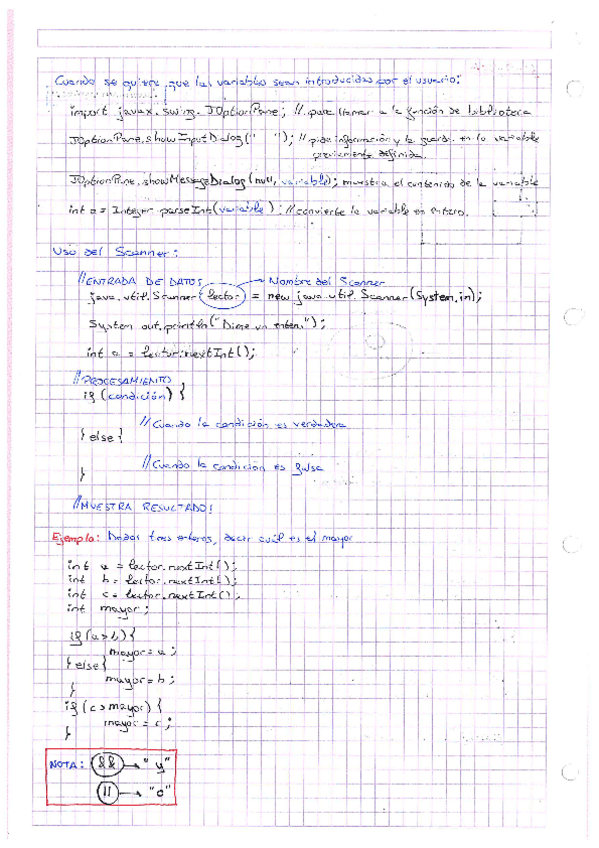 Cuando se quiere que las variables sean introducidas por el usuario:
import javax.swing.JOptionPane; // para llamar a la función de biblioteca
JOptionPane.showInputDialog(" "); // pide información y la guarda en la variable
previamente definida.
JOptionPane.showMessageDialog(null, variable); muestra el contenido de la variable
int a = Integer.parseInt(variable); // convierte la variable en entero.
Uso del Scanner:
//ENTRADA DE DATOS
Nombre del Scanner
java.util.Scanner lector = new java.util.Scanner(System.in);
System.out.println("Dime un entero");
int a = lector.nextInt();
//PROCESAMIENTO
if (condición) {
//Cuando la condición es verdadera
} else {
//Cuando la condición es falsa
}
//MUESTRA RESULTADO:
Ejemplo: Dados tres enteros, decir cuál es el mayor
int a = lector.nextInt();
int b = lector.nextInt();
int c = lector.nextInt();
int mayor;
if (a>b) {
mayor = a;
} else {
mayor = b;
}
if (c > mayor) {
mayor = c;
}
NOTA: && → "y"
|| → "o"